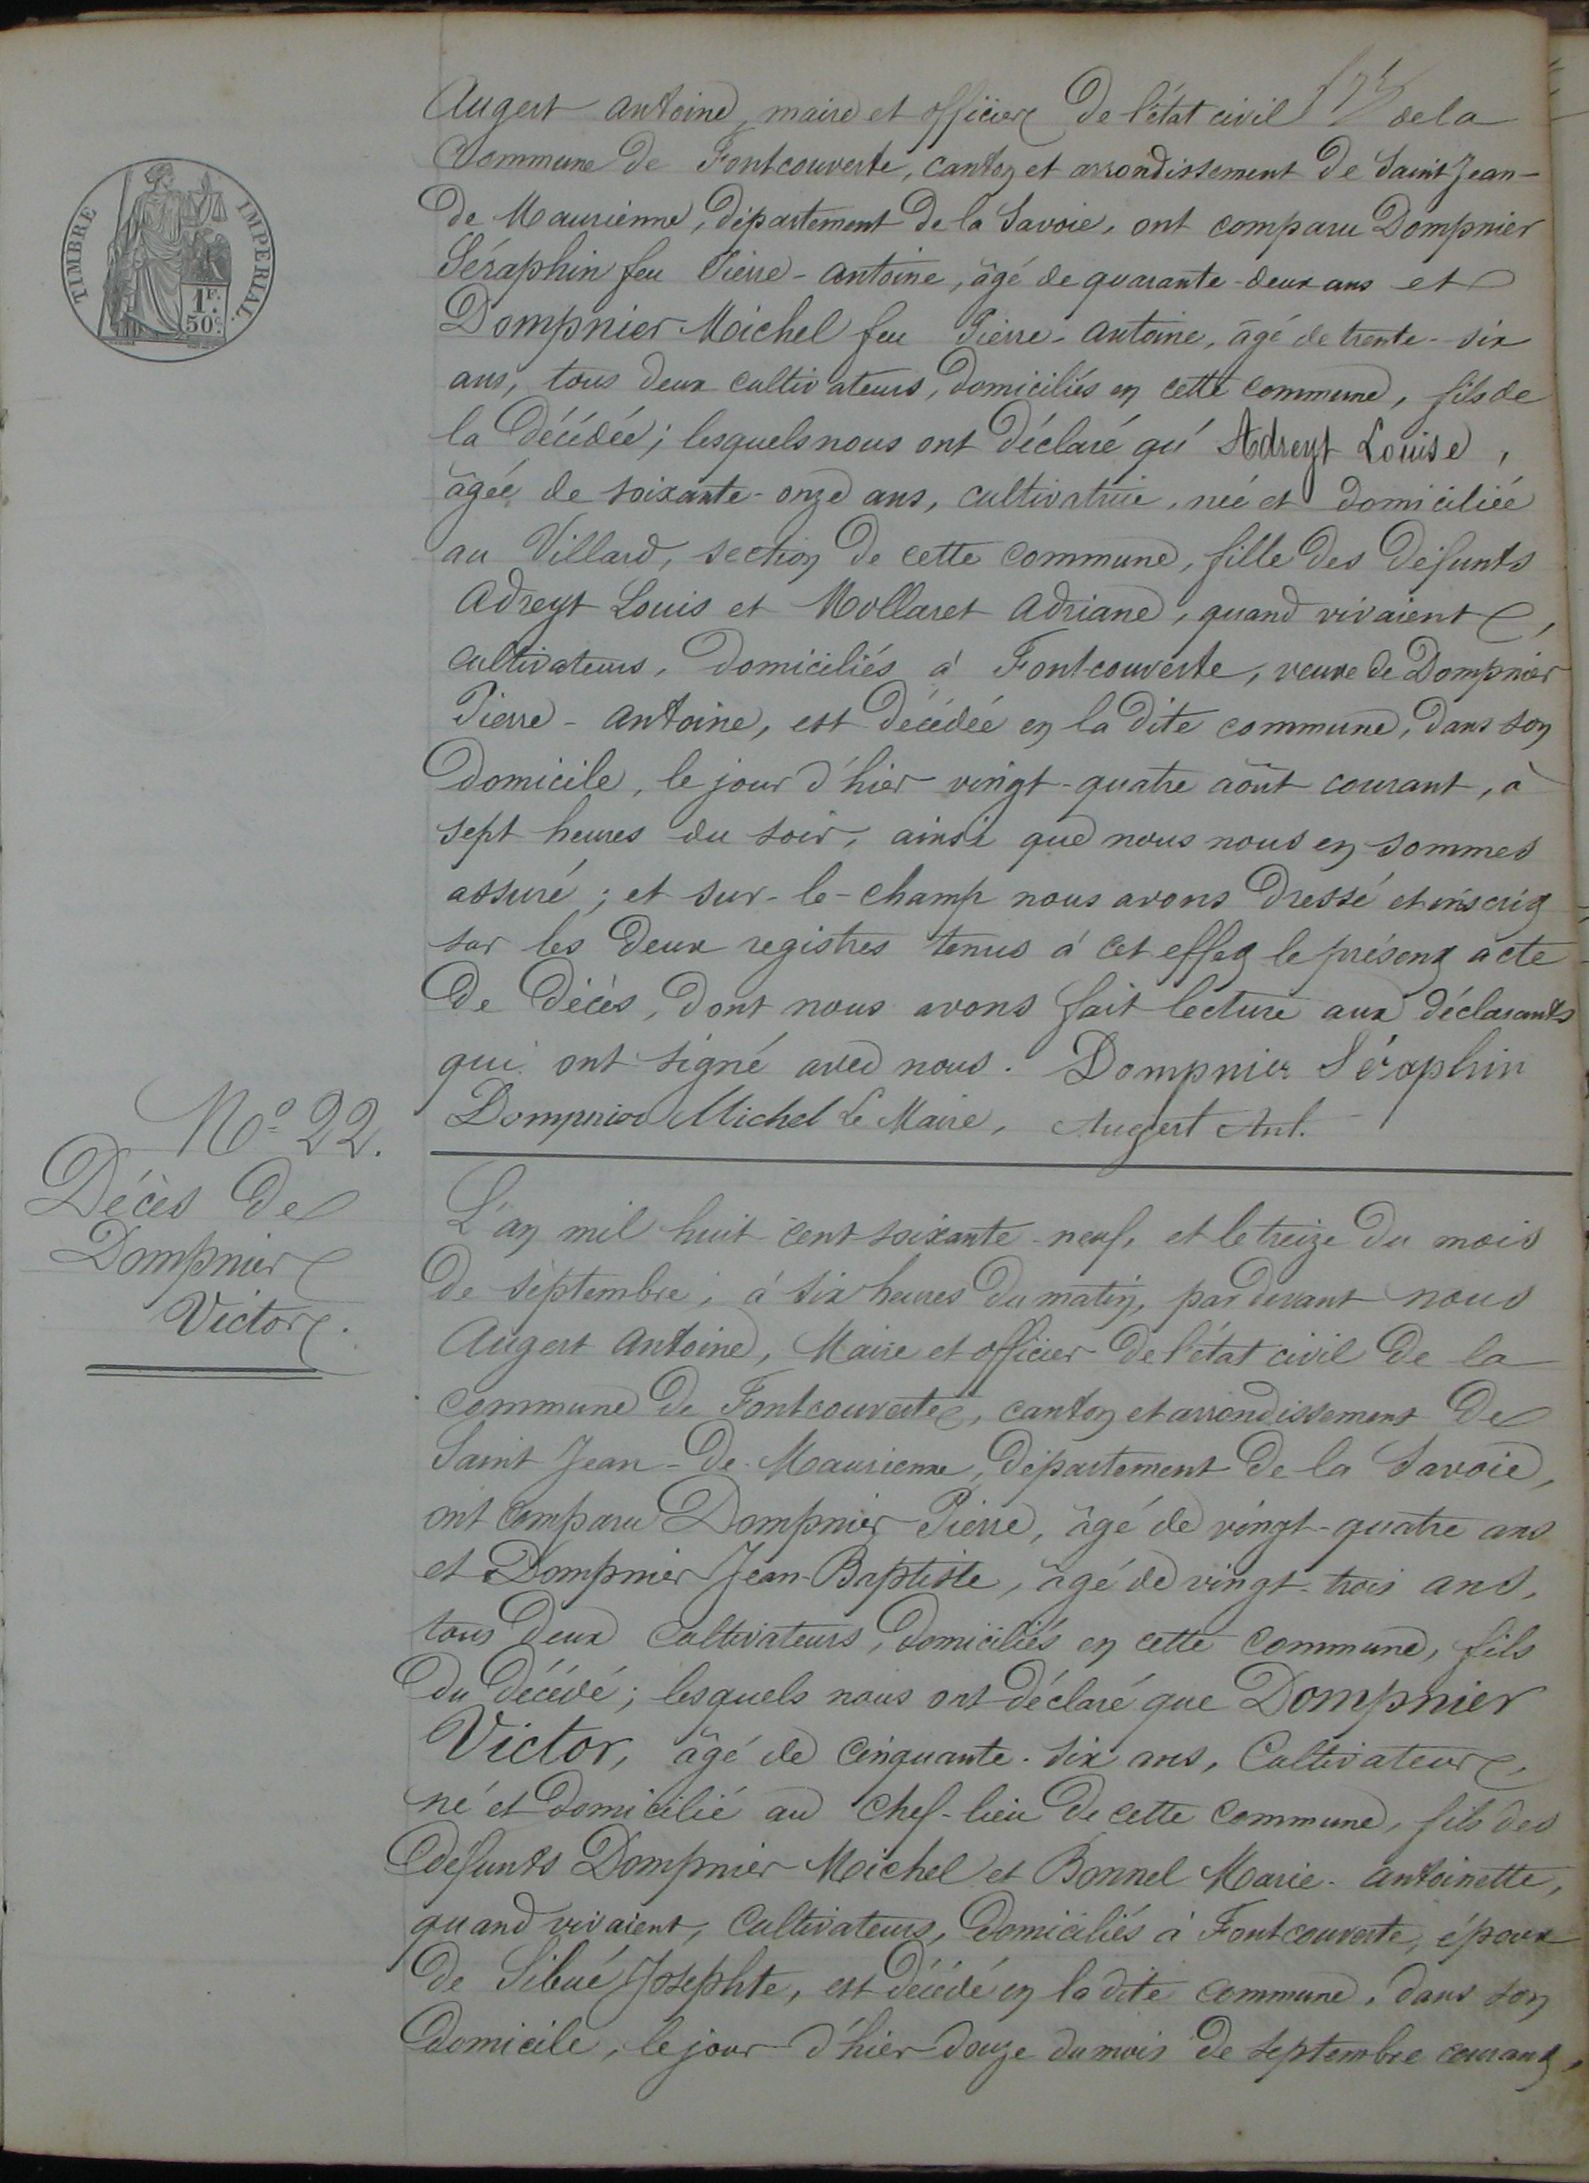 Augert Antoine, maire et officier de l'état civil de la
Commune de Fontcouverte, canton et arrondissement de Saint Jean-
de Maurienne, département de la Savoie, ont comparu Dompnier
Séraphin feu Pierre-Antoine, âgé de quarante-deux ans et
Dompnier Michel feu Pierre-Antoine, âgé de trente-six
ans, tous deux cultivateurs, domiciliés en cette commune, fils de
la décédée; lesquels nous ont déclaré qu' Adreyt Louise,
âgée de soixante-onze ans, cultivatrice, née et domiciliée
au Villard, section de cette commune, fille des défunts
Adreyt Louis et Mollaret Adriane, quand vivaient,
cultivateurs, domiciliés à Fontcouverte, veuve de Dompnier
Pierre-Antoine, est décédée en la dite commune, dans son
domicile, le jour d'hier vingt-quatre août courant, à
sept heures du soir, ainsi que nous nous en sommes
assuré; et sur-le-champ nous avons dressé et inscrit
sur les deux registres tenus à cet effet le présent acte
de décès, dont nous avons fait lecture aux déclarants
qui ont signé avec nous. Dompnier Séraphin
Dompnier Michel Le Maire, Augert Ant.
TIMBRE IMPERIAL
1F. 50c.
No 22.
Décès de
Dompnier
Victor.
L'an mil huit cent soixante-neuf, et le treize du mois
de septembre, à six heures du matin, pardevant nous
Augert Antoine, Maire et officier de l'état civil de la
commune de Fontcouverte, canton et arrondissement de
Saint Jean-de-Maurienne, département de la Savoie,
ont comparu Dompnier Pierre, âgé de vingt-quatre ans
et Dompnier Jean-Baptiste, âgé de vingt-trois ans,
tous deux cultivateurs, domiciliés en cette commune, fils
du décédé; lesquels nous ont déclaré que Dompnier
Victor, âgé de cinquante-six ans, cultivateur,
né et domicilié au chef-lieu de cette commune, fils des
défunts Dompnier Michel et Bonnel Marie-Antoinette,
quand vivaient, cultivateurs, domiciliés à Fontcouverte, époux
de Sibué Josephte, est décédé en la dite commune, dans son
domicile, le jour d'hier douze du mois de septembre courant,